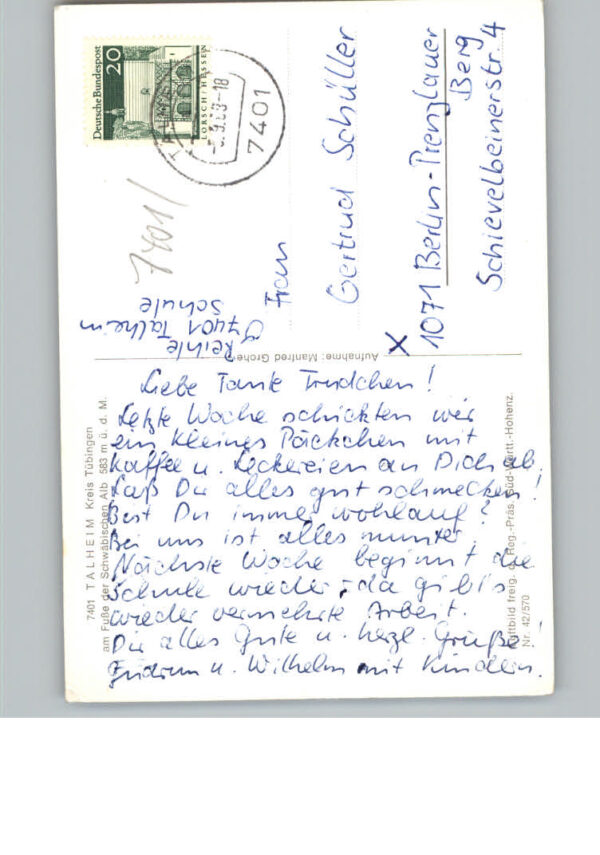 Deutsche Bundespost
20
LORSCH/HESSEN
7401
7401/
Reihle
7401 Talheim
Schule
Frau
Gertrud Schüller
X
1071 Berlin-Prenzlauer
Berg
Schievelbeinerstr. 4
Aufnahme: Manfred Grohe
Liebe Tante Trudchen!
Letzte Woche schickten wir
ein kleines Päckchen mit
Kaffee u. Leckereien an Dich ab.
Laß Du alles gut schmecken!
Bist Du immer wohlauf?
Bei uns ist alles munter.
Nächste Woche beginnt die
Schule wieder, da gibt's
wieder vermehrte Arbeit.
Dir alles Gute u. herzl. Grüße!
Gudrun u. Wilhelm mit Kindern.
7401 TALHEIM Kreis Tübingen
am Fuße der Schwäbischen Alb 583 m ü. d. M.
Luftbild freig. d. Reg.-Präs. Süd-Württ.-Hohenz.
Nr. 42/570